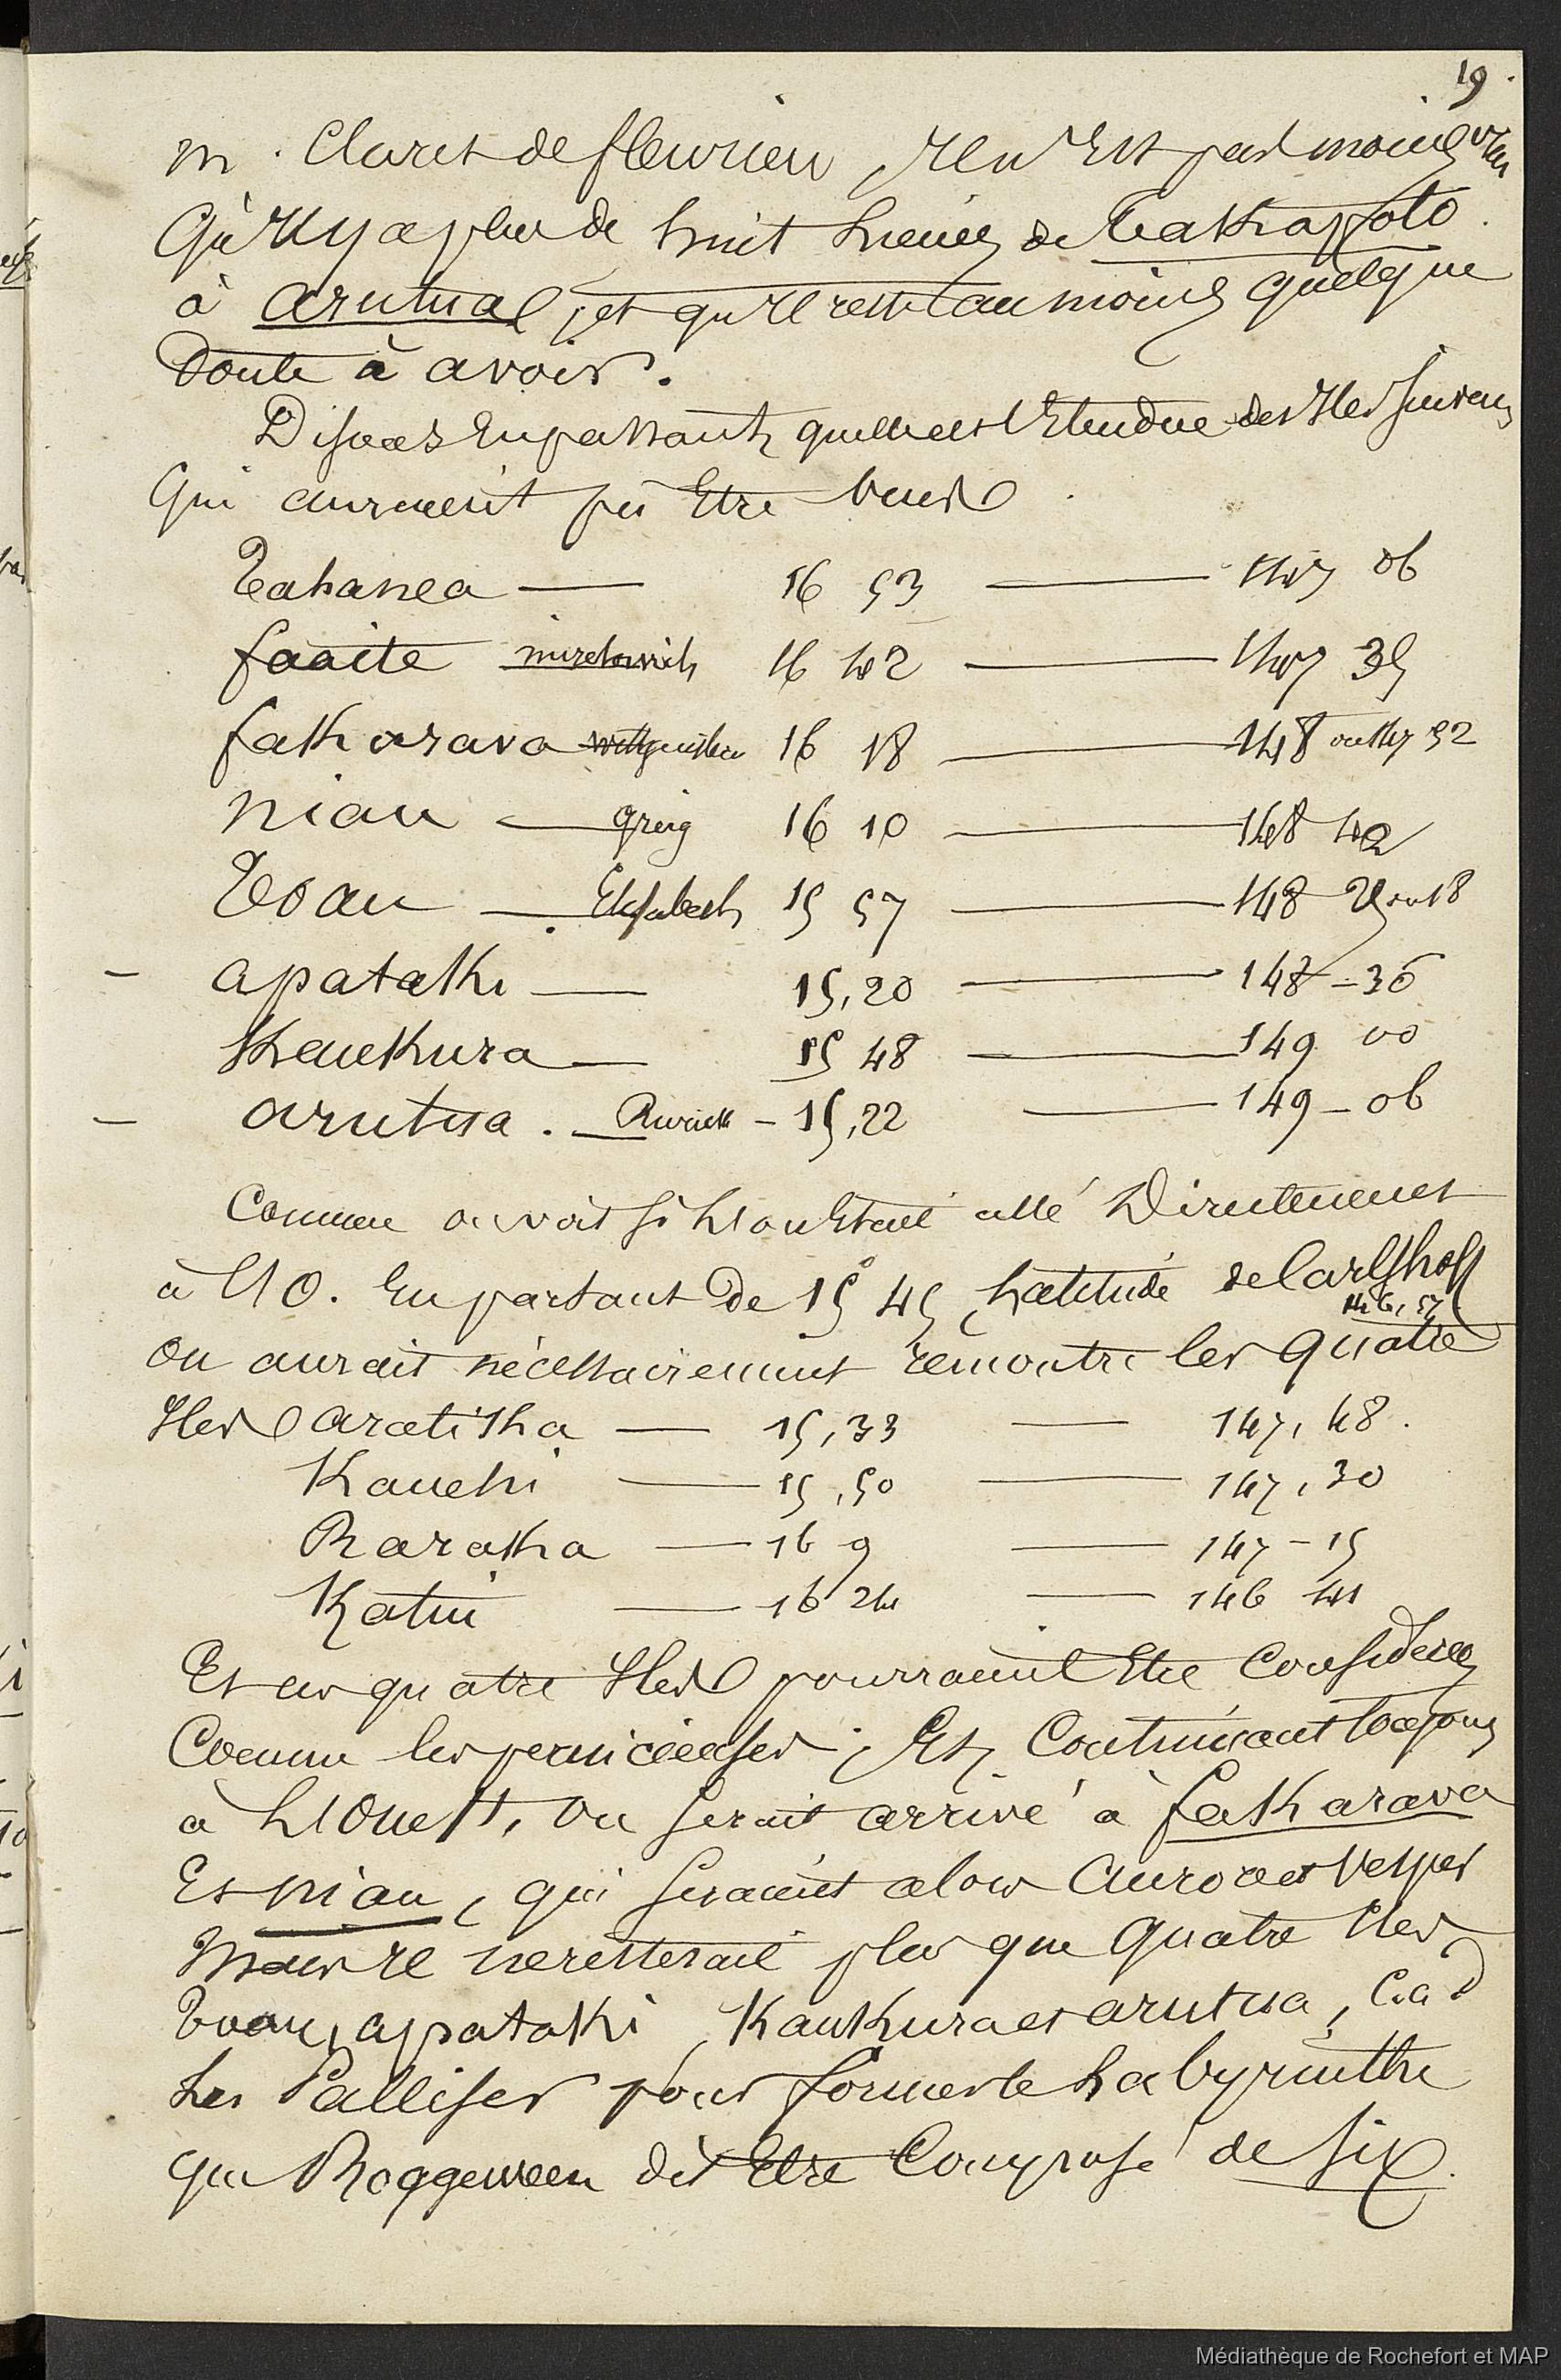 19.
M. Claret de fleurieu, Il n'Est pas moins vrai
Qu'Il y a plus de huit Lieues de Takapoto
à arutua, et qu'Il reste au moins quelque
Doute à avoir.
Disons En passant, quelle est l'Etendue des Iles suivantes
Qui auraient pû Etre vues.
Tahanea — 16 53 — 147 06
faaite 16 42 — 147 35
fakarava wittgenstein 16 18 — 148 ou 147 52
niau — greig 16 10 — 148 42
Toau — Elisabeth 15 57 — 148 18
- apataki — 15,20 — 148 - 36
Kaukura — 15 48 — 149 00
- arutua. — Rurick - 15,22 — 149 - 06
Comme on voit si L'on Etait allé Directement
à l'O. En partant de 15° 45 Latitude de Carlshoff
146, 57
on aurait nécessairement rencontré les quatre
Iles aratika — 15,33 — 147, 48.
Kauehi — 15,50 — 147, 30
Raraka — 16 9 — 147 - 15
Katiu — 16 24 — 146 41
Et ces quatre Iles pourraient Etre Considérées
Comme les pernicieuses; Et, Continuant toujours
à L'Ouest, on serait arrivé à fakarava
Et niau, qui seraient alors Aurore et Vesper
Mais Il ne resterait plus que quatre Iles
Toau, apataki, Kaukura et arutua, C. a d
Les Palliser pour former le Labyrinthe
que Roggeween dit Etre Composé de six.
Médiathèque de Rochefort et MAP